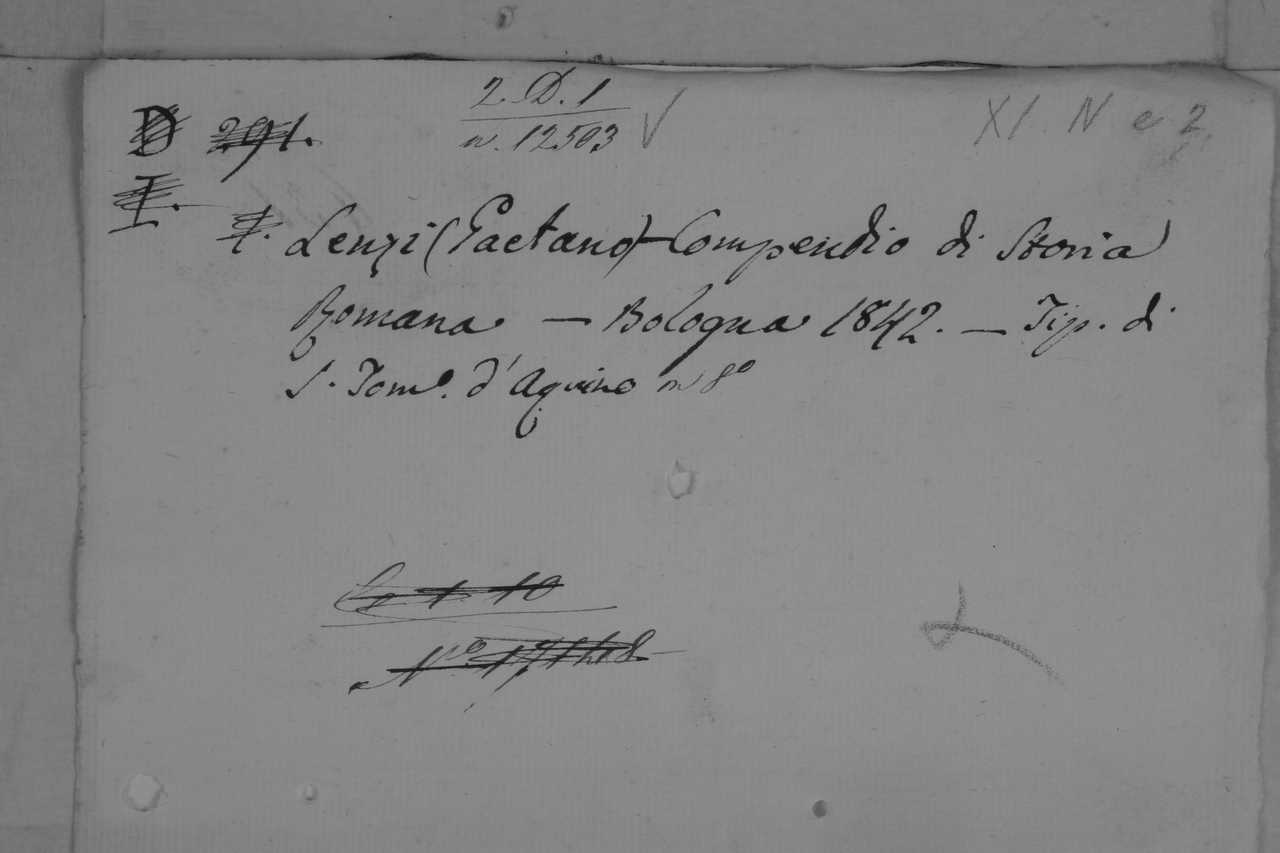 2. D. 1
D 291. n. 12503 V XI. N e 2.
I.
Lenzi (Gaetano) - Compendio di Storia
Romana — Bologna 1842. — Tip. di
S. Tom.º d'Aquino in 8º